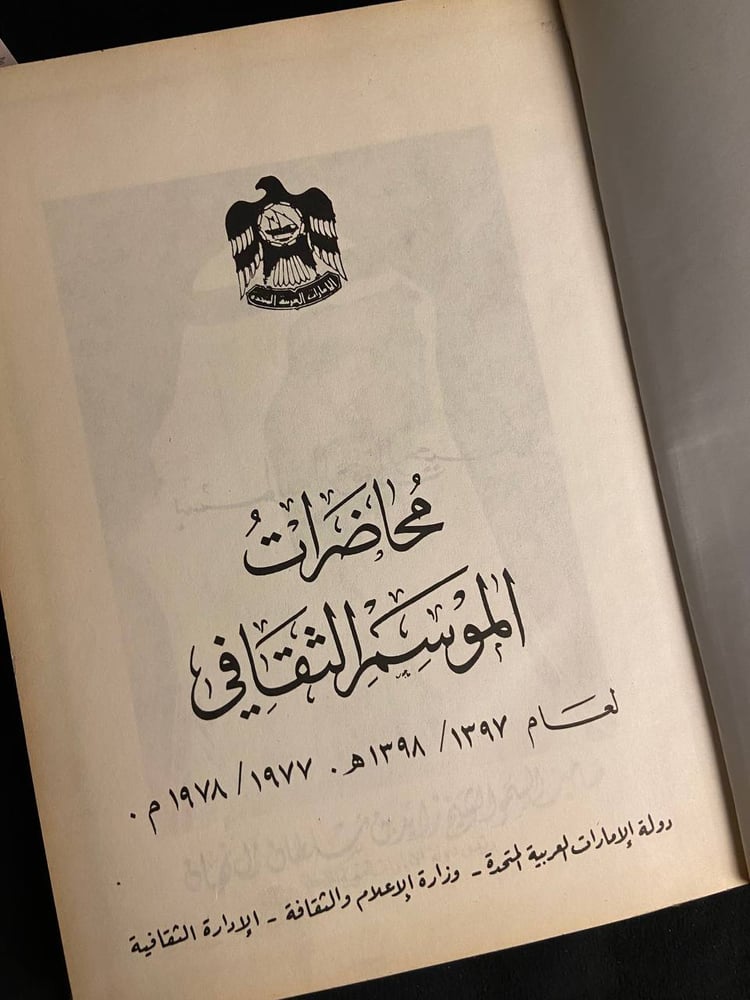 الإمارات العربية المتحدة
مُحاضَراتُ
الموْسِمَر الثقَافي
لعَام ١٣٩٧/ ١٣٩٨هـ. ١٩٧٧/ ١٩٧٨م.
دولة الإمارات العربية المتحدة - وزارة الإعلام والثقافة - الإدارة الثقافية